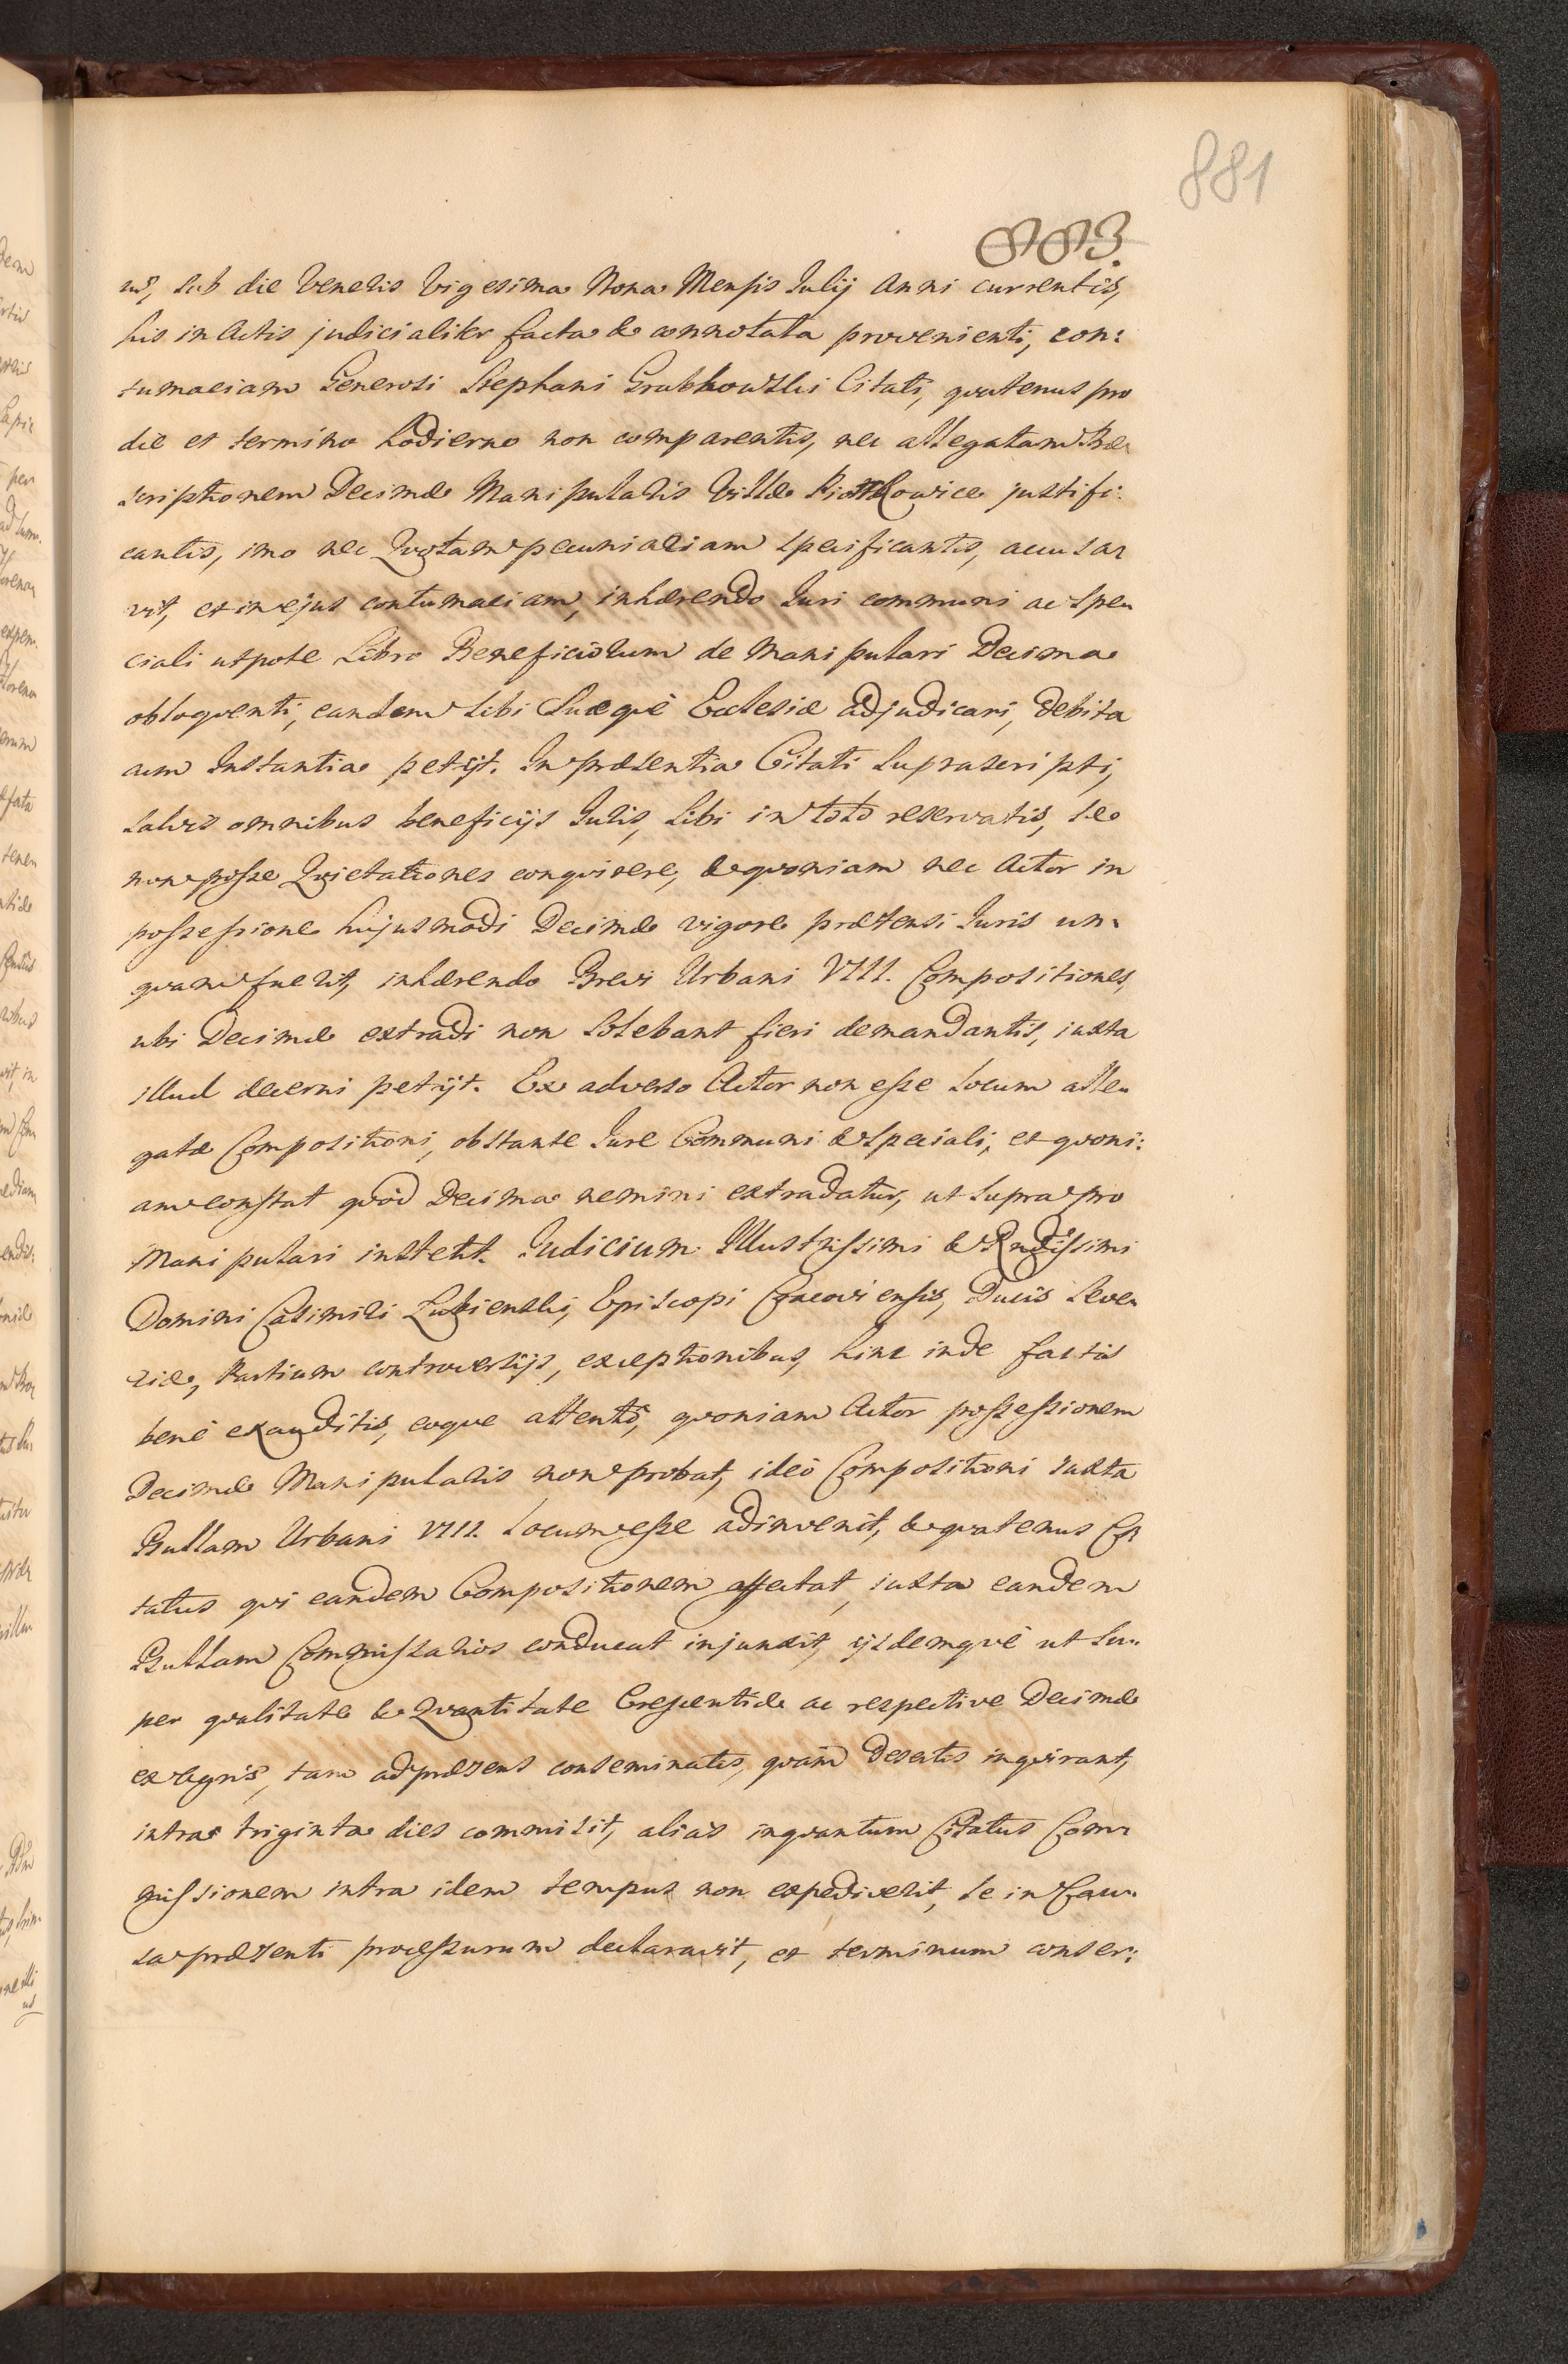 881
883.
us, sub die Veneris Vigesima Nona Mensis Julij Anni currentis,
his in Actis judicialiter facta & connotata provenienti, con:
tumaciam Generosi Stephani Grabkowski Citati, quatenus pro
die et termino hodierno non comparentis, nec allegatam Præ
scriptionem Decimæ Manipularis Villæ justifi:
cantis, imo nec Quotam pecuniariam specificantis, accusa
vit, et in ejus contumaciam, inhærendo Juri communi ac spe
ciali utpote Libro Beneficiorum de Manipulari Decima
obloquenti, eandem sibi Suæquè Ecclesiæ adjudicari, debita
cum Instantia petijt. In præsentia Citati Suprascripti,
salvis omnibus beneficijs Juris, sibi in toto reservatis, se
non posse Quietationes conquirere, & quoniam nec Actor in
possessione hujusmodi Decimæ vigore prætensi Juris un:
quam fuerit, inhærendo Brevi Urbani VIII. Compositiones,
ubi Decimæ extradi non solebant fieri demandantis, iuxta
illud decerni petijt. Ex adverso Actor non esse Locum alle
gatæ Compositioni, obstante Jure Communi & Speciali, et quoni:
am constat quòd Decima nemini extradatur, ut supra pro
Manipulari institit. Judicium Illustrissimi & Rndissimi
Domini Casimiri Łubienski, Episcopi Cracoviensis, Ducis Seve
riæ, Partium controversijs, exceptionibus, hinc inde factis
benè exauditis, eoque attentô, quoniam Actor possessionem
Decimæ Manipularis non probat, ideò Compositioni iuxta
Bullam Urbani VIII. Locum esse adinvenit, & quatenus Ci
tatus qui eandem Compositionem affectat, iuxta eandem
Bullam Commissarios conducat injunxit, ijsdemquè ut su:
per qualitate & Quantitate Crescentiæ ac respective Decimæ
ex Agris, tam ad præsens conseminatis, quàm desertis inquirant,
intra triginta dies commisit, aliàs inquantum Citatus Com
missionem intra idem tempus non expediverit, se in Cau:
sa præsenti processurum declaravit, et terminum conser: